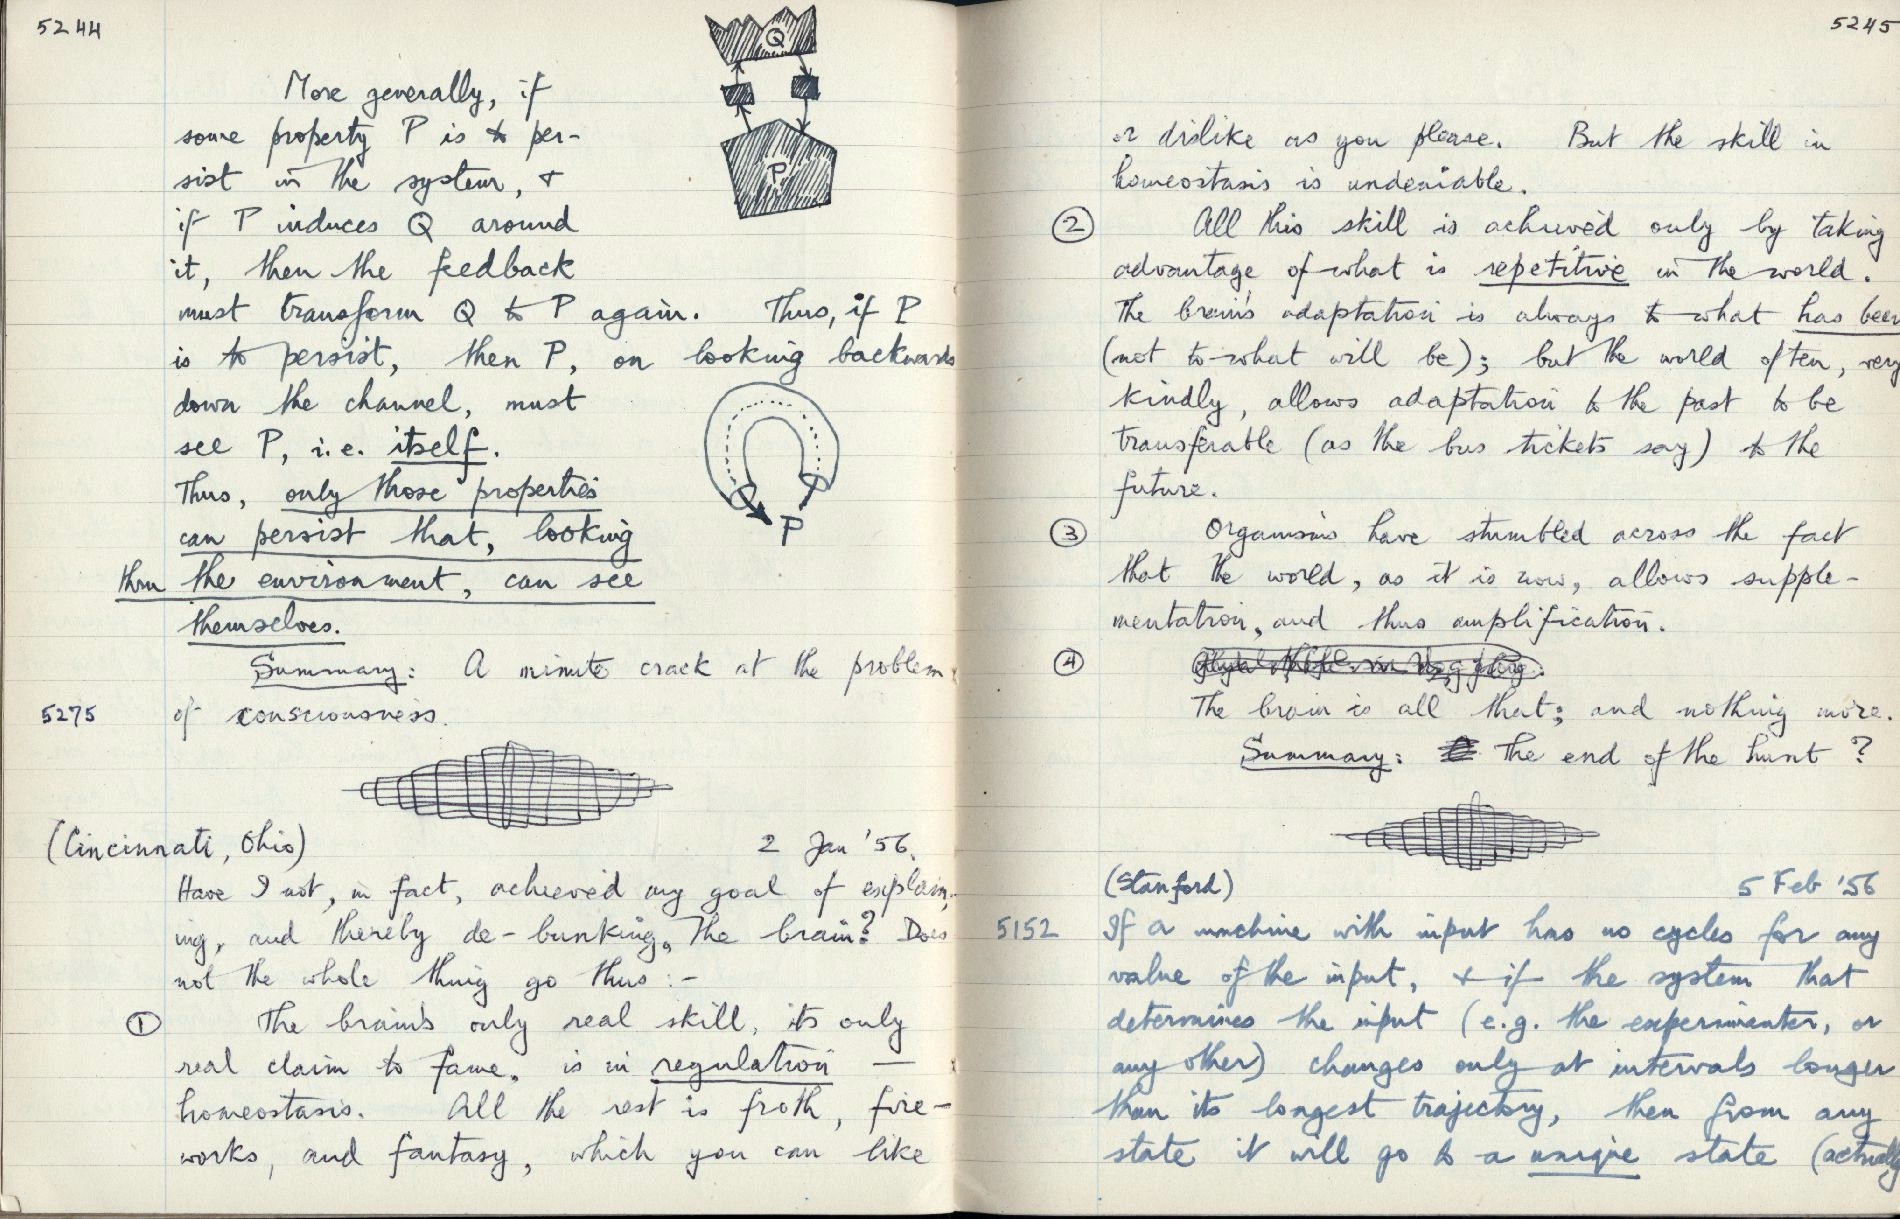 5244
Q
P
More generally, if
some property P is to per-
sist in the system, +
if P induces Q around
it, then the feedback
must transform Q to P again. Thus, if P
is to persist, then P, on looking backwards
down the channel, must
see P, i.e. itself.
Thus, only those properties
can persist that, looking
thru the environment, can see
themselves.
P
Summary: A minute crack at the problem
5275 of consciousness.
(Cincinnati, Ohio) 2 Jan '56.
Have I not, in fact, achieved my goal of explain-
ing, and thereby de-bunking, the brain? Does
not the whole thing go thus:-
① The brain's only real skill, its only
real claim to fame, is in regulation —
homeostasis. All the rest is froth, fire-
works, and fantasy, which you can like
5245
or dislike as you please. But the skill in
homeostasis is undeniable.
② All this skill is achieved only by taking
advantage of what is repetitive in the world.
The brain's adaptation is always to what has been
(not to what will be); but the world often, very
kindly, allows adaptation to the past to be
transferable (as the bus tickets say) to the
future.
③ Organisms have stumbled across the fact
that the world, as it is now, allows supple-
mentation, and thus amplification.
④
The brain is all that; and nothing more.
Summary: The end of the hunt?
(Stanford) 5 Feb '56
5152 If a machine with input has no cycles for any
value of the input, + if the system that
determines the input (e.g. the experimenter, or
any other) changes only at intervals longer
than its longest trajectory, then from any
state it will go to a unique state (actually